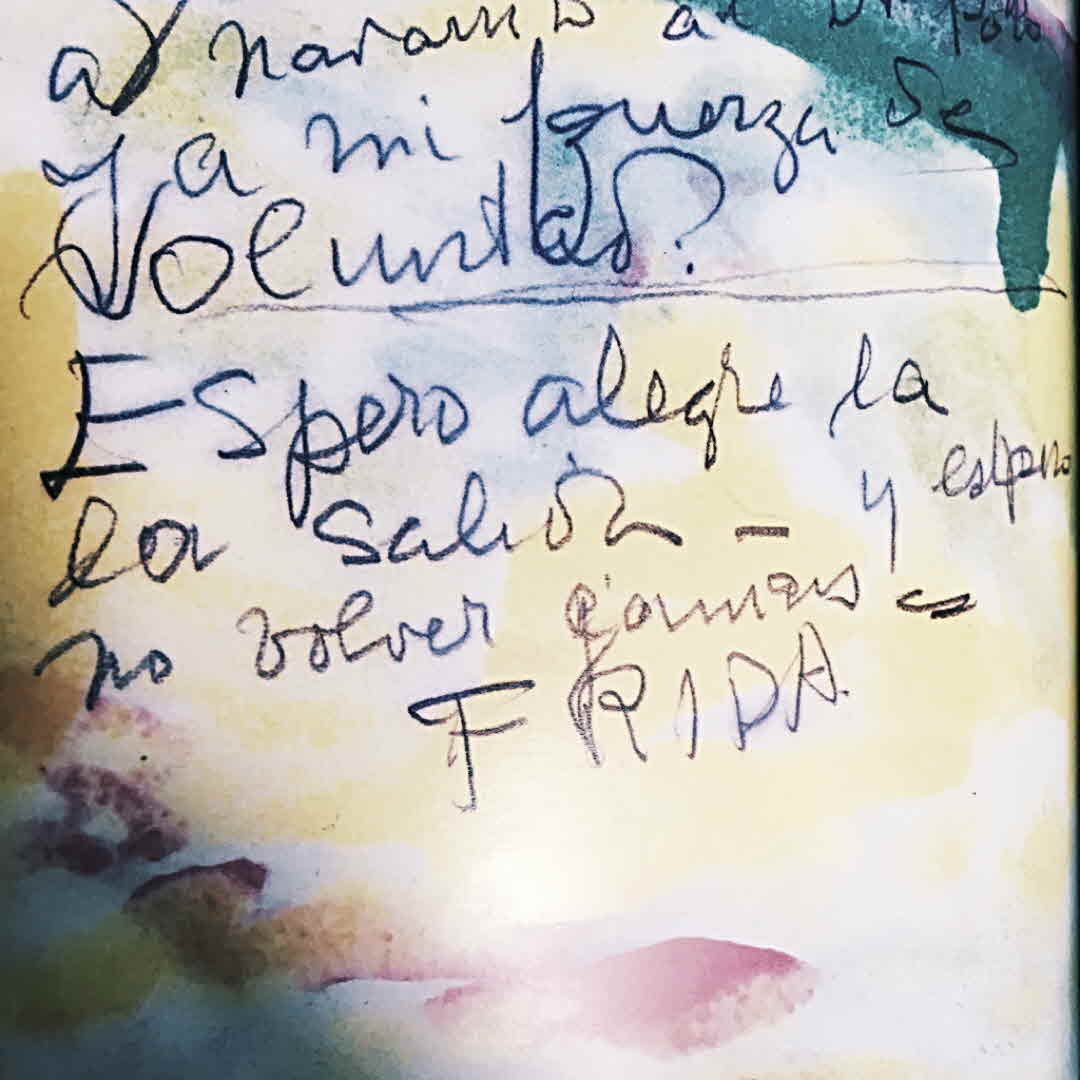 a Navarro al Dr Polo
y a mi fuerza de
Voluntad?
Espero alegre la
la salida - y espero
no volver jamas -
FRIDA.